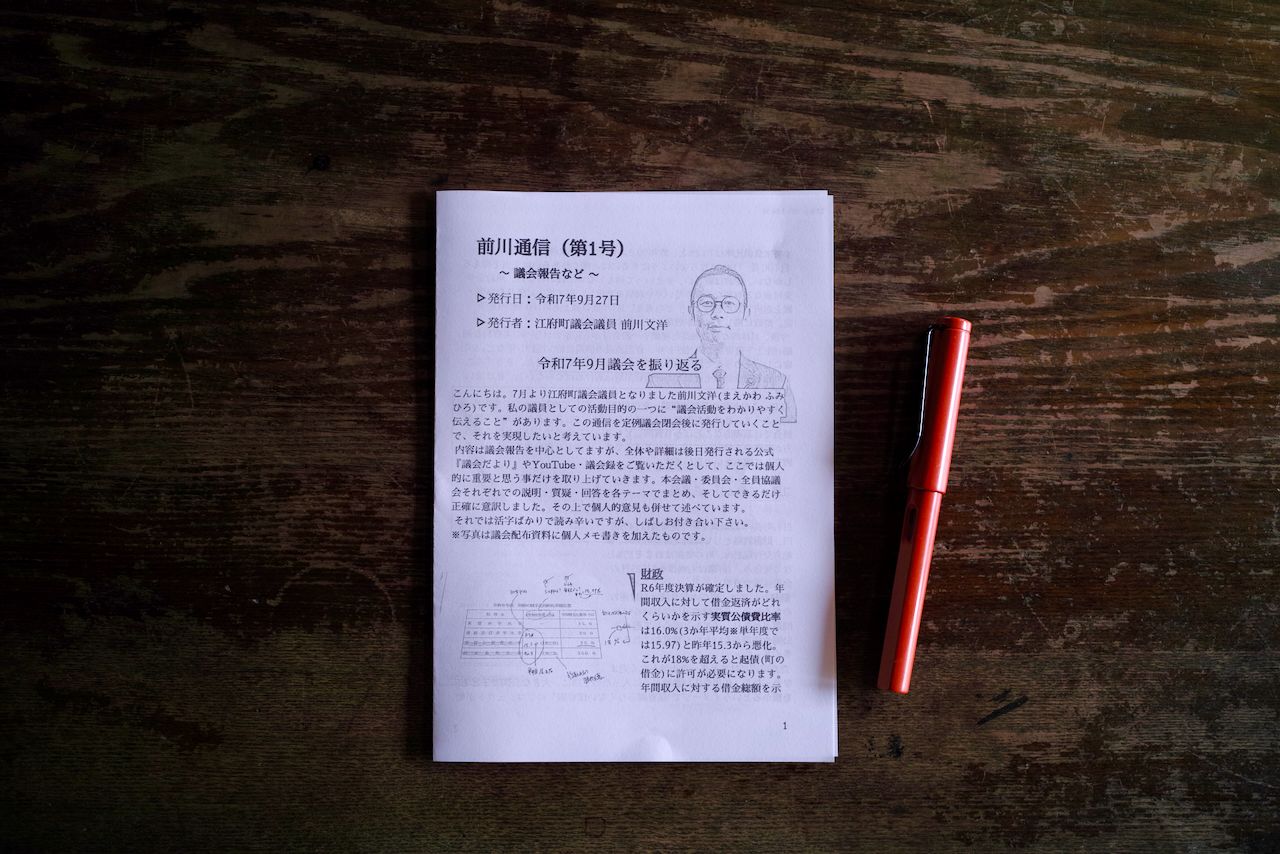 前川通信（第1号）
～ 議会報告など ～
▷発行日：令和7年9月27日
▷発行者：江府町議会議員 前川文洋
令和7年9月議会を振り返る
こんにちは。7月より江府町議会議員となりました前川文洋(まえかわ ふみ
ひろ)です。私の議員としての活動目的の一つに“議会活動をわかりやすく
伝えること”があります。この通信を定例議会閉会後に発行していくこと
で、それを実現したいと考えています。
内容は議会報告を中心としてますが、全体や詳細は後日発行される公式
『議会だより』やYouTube・議会録をご覧いただくとして、ここでは個人
的に重要と思う事だけを取り上げていきます。本会議・委員会・全員協議
会それぞれでの説明・質疑・回答を各テーマでまとめ、そしてできるだけ
正確に意訳しました。その上で個人的意見も併せて述べています。
それでは活字ばかりで読み辛いですが、しばしお付き合い下さい。
※写真は議会配布資料に個人メモ書きを加えたものです。
財政
R6年度決算が確定しました。年
間収入に対して借金返済がどれ
くらいかを示す実質公債費比率
は16.0%(3か年平均※単年度で
は15.97)と昨年15.3から悪化。
これが18%を超えると起債(町の
借金)に許可が必要になります。
年間収入に対する借金総額を示
1